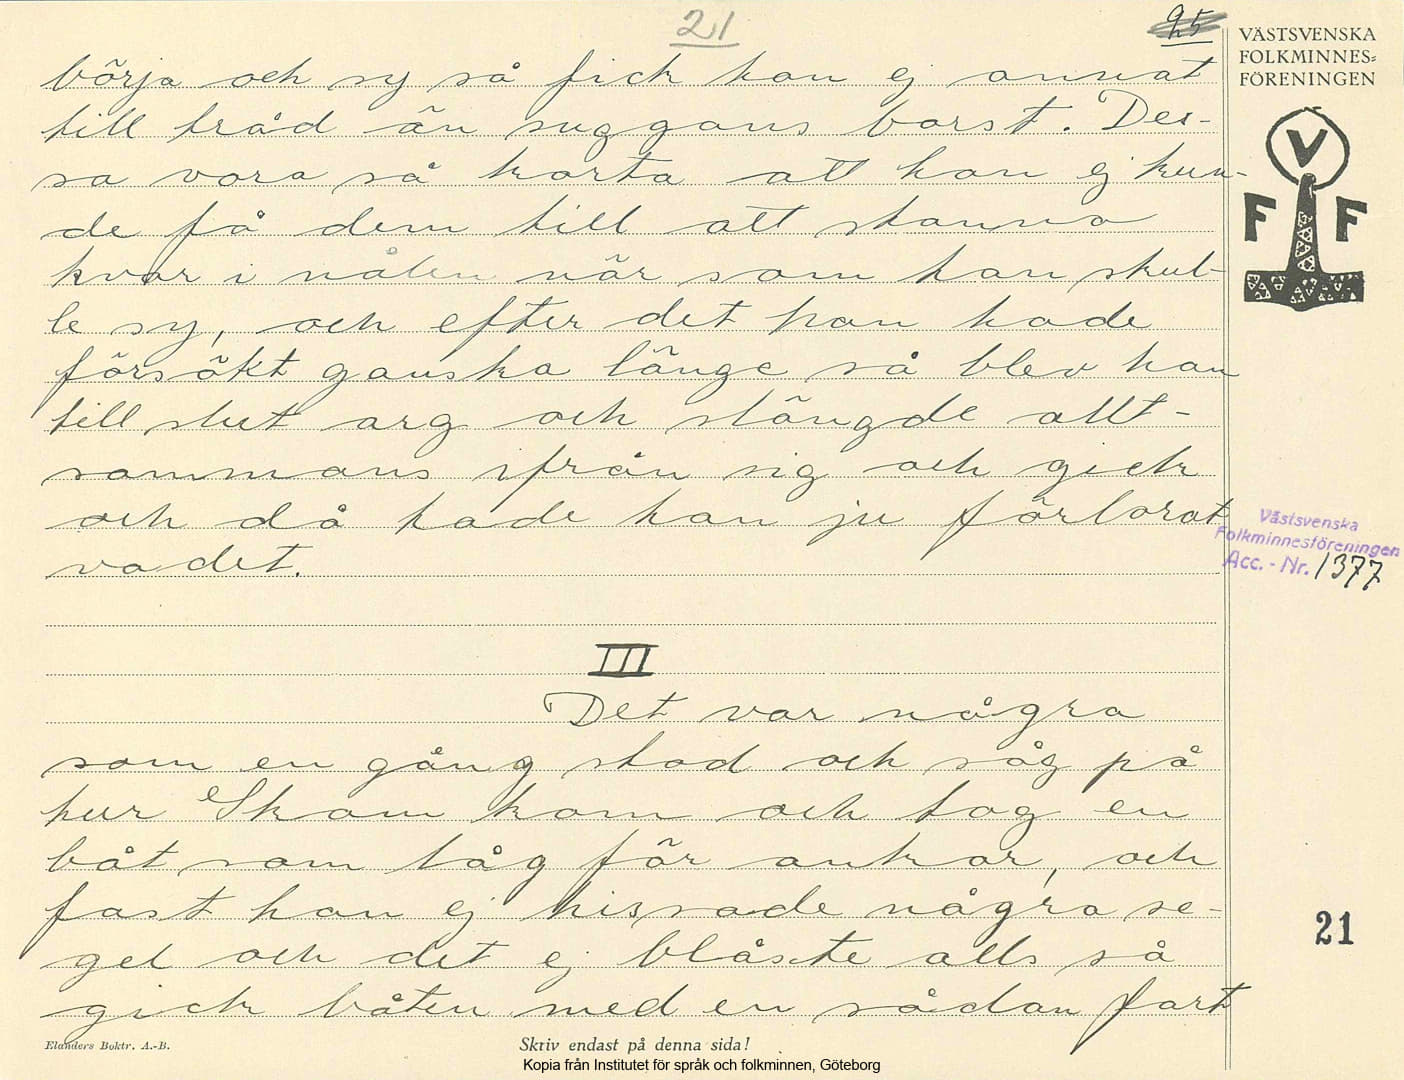 21
25
VÄSTSVENSKA
FOLKMINNES=
FÖRENINGEN
V
F F
börja och sy så fick han ej annat
till tråd än suggans borst. Des-
sa vora så korta att han ej kun-
de få dem till att stanna
kvar i nålen när som han skul-
le sy, och efter det han hade
försökt ganska länge så blev han
till slut arg och slängde allt-
sammans ifrån sig och gick
och då hade han ju förlorat
vadet.
Västsvenska
Folkminnesföreningen
Acc. - Nr. 1377
III
Det var några
som en gång stod och såg på
hur Skam kom och tog en
båt som låg för ankar, och
fast han ej hissade några se-
gel och det ej blåste alls så
gick båten med en sådan fart
21
Elanders Boktr. A.-B.
Skriv endast på denna sida!
Kopia från Institutet för språk och folkminnen, Göteborg